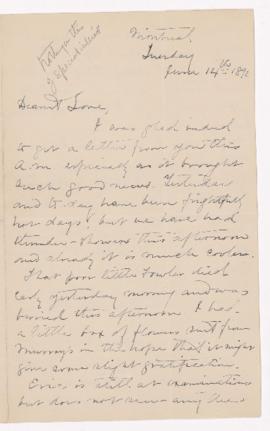 Montreal.
Tuesday
June 14th 189
Dearest Love,
I was glad indeed
to get a letter from you this
a.m. especially as it brought
such good news. Yesterday
and to-day have been frightfully
hot days, but we have had
thunder-showers this afternoon
and already it is much cooler.
That poor little Fowler died
early yesterday morning and was
buried this afternoon. I had
a little box of flowers sent from
Murray's in the hope that it might
give some slight gratification.
Eric is still at examinations
but does not seem any